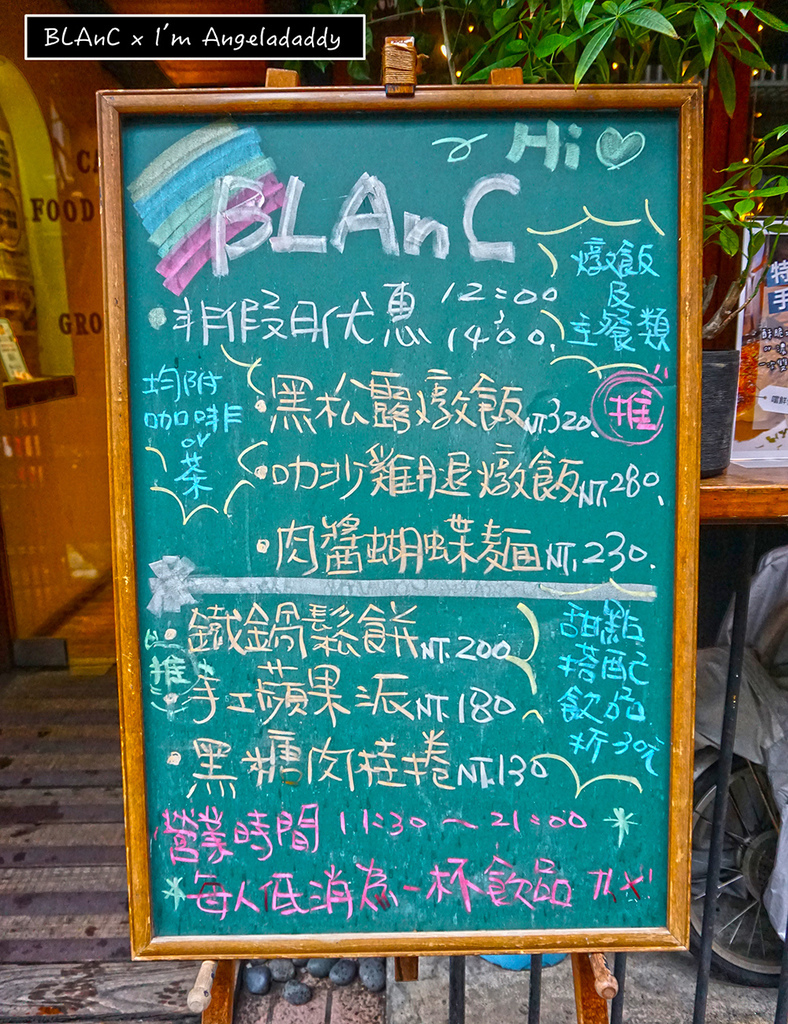 BLAnC x I'm Angeladaddy
Hi
BLAnC
燉飯
及
主餐類
非假日优惠 12:00
~
14:00.
均附
咖啡
or
茶
黑松露燉飯NT.320.
推
叻沙雞腿燉飯NT.280.
肉醬蝴蝶麵NT.230.
鐵鍋鬆餅NT.200
推
手工蘋果派NT.180
黑糖肉桂捲NT.130
甜點
搭配
飲品
折30元
營業時間 11:30~21:00
每人低消為一杯飲品
FOOD
GRO
CA
特
手